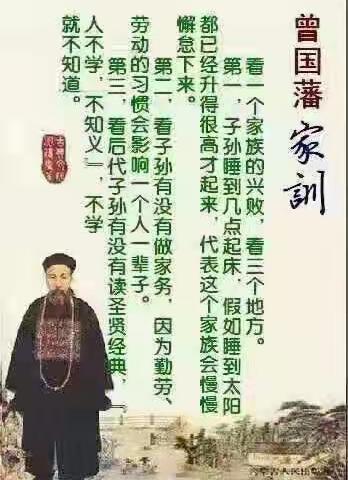 曾国藩家訓
看一个家族的兴败，看三个地方。
第一，子孙睡到几点起床，假如睡到太阳
都已经升得很高才起来，代表这个家族会慢慢
懈怠下来。
第二，看子孙有没有做家务，因为勤劳、
劳动的习惯会影响一个人一辈子。
第三，看后代子孙有没有读圣贤经典，『
人不学，不知义』，不学
就不知道。